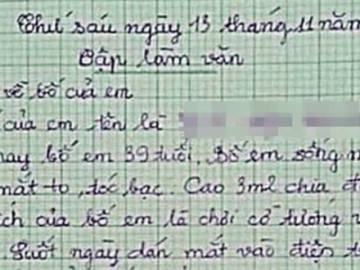 Thứ sáu ngày 13 tháng 11 năm
Tập làm văn
về bố của em
của em tên là
nay bố em 39 tuổi. Bố em sống
mắt to, tóc bạc. Cao 3m2 chia
ích của bố em là chơi cờ tướng
Suốt ngày dán mắt vào điện